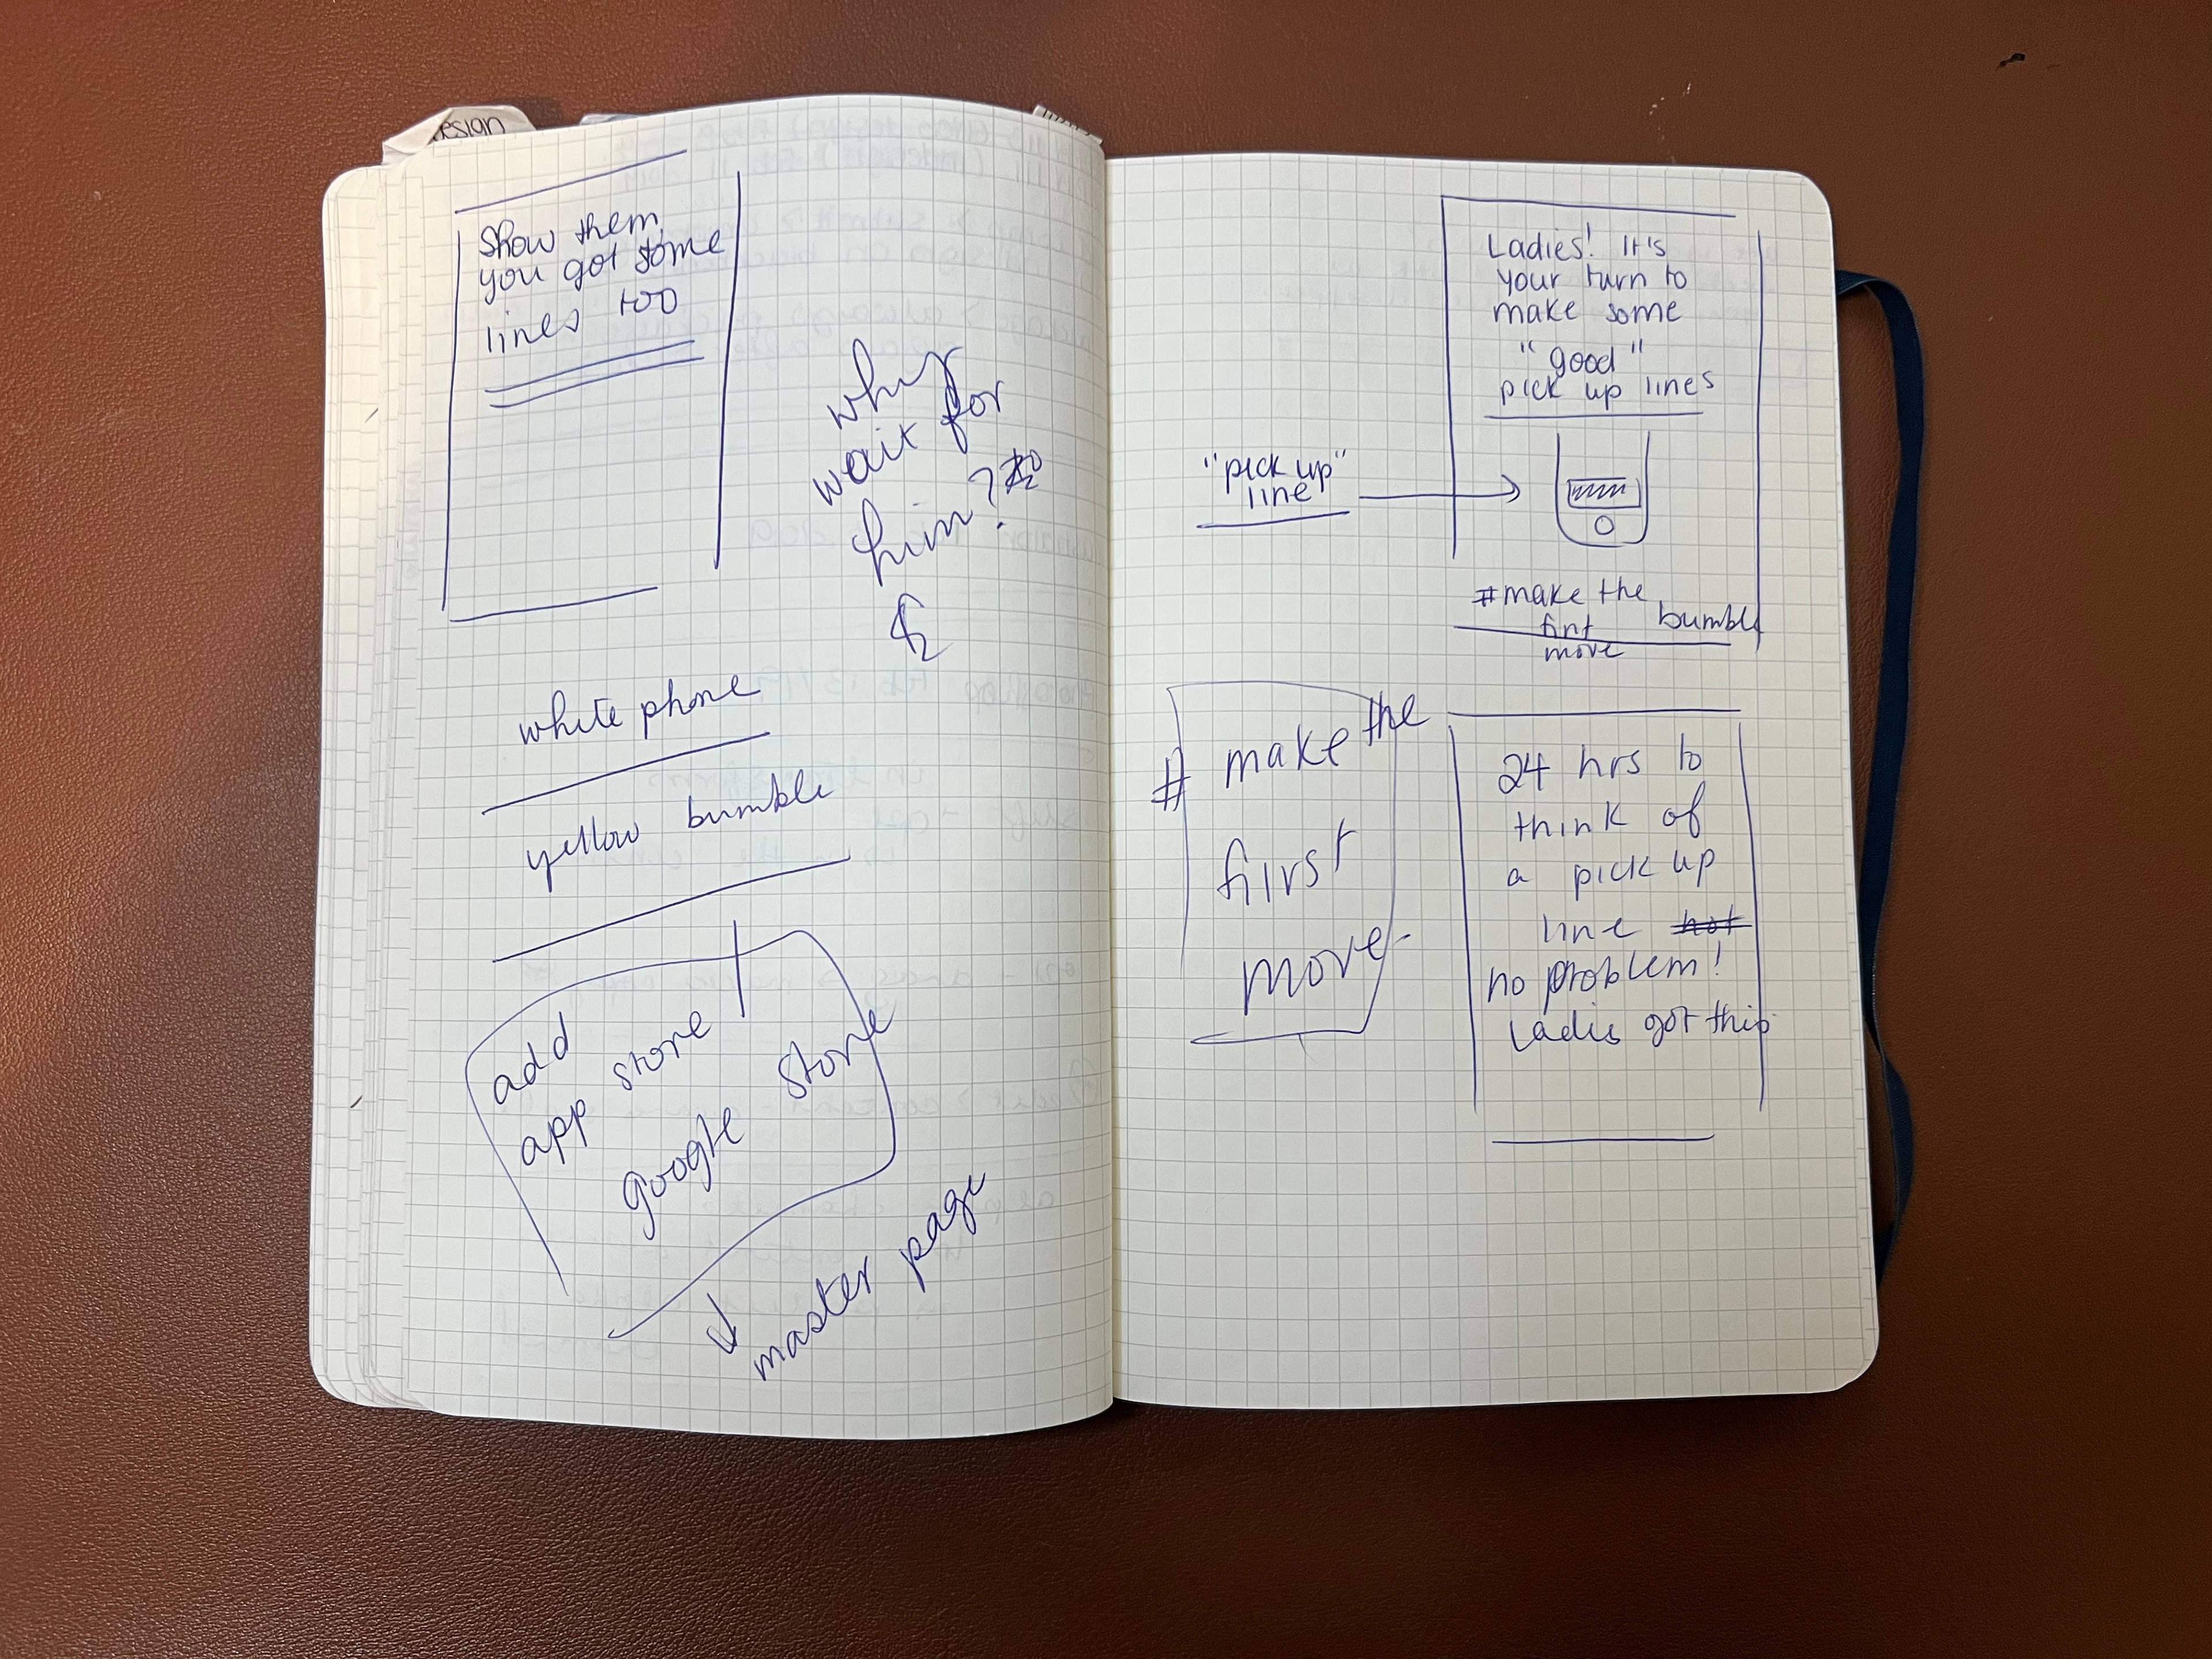 esign
show them
you got some
lines too
why
wait for
him?
white phone
yellow bumble
add
app store
google store
master page
Ladies! It's
your turn to
make some
"good"
pick up lines
"pick up"
line
#make the
first
move
bumble
# make the
first
move
24 hrs to
think of
a pick up
line not
no problem!
Ladies got this